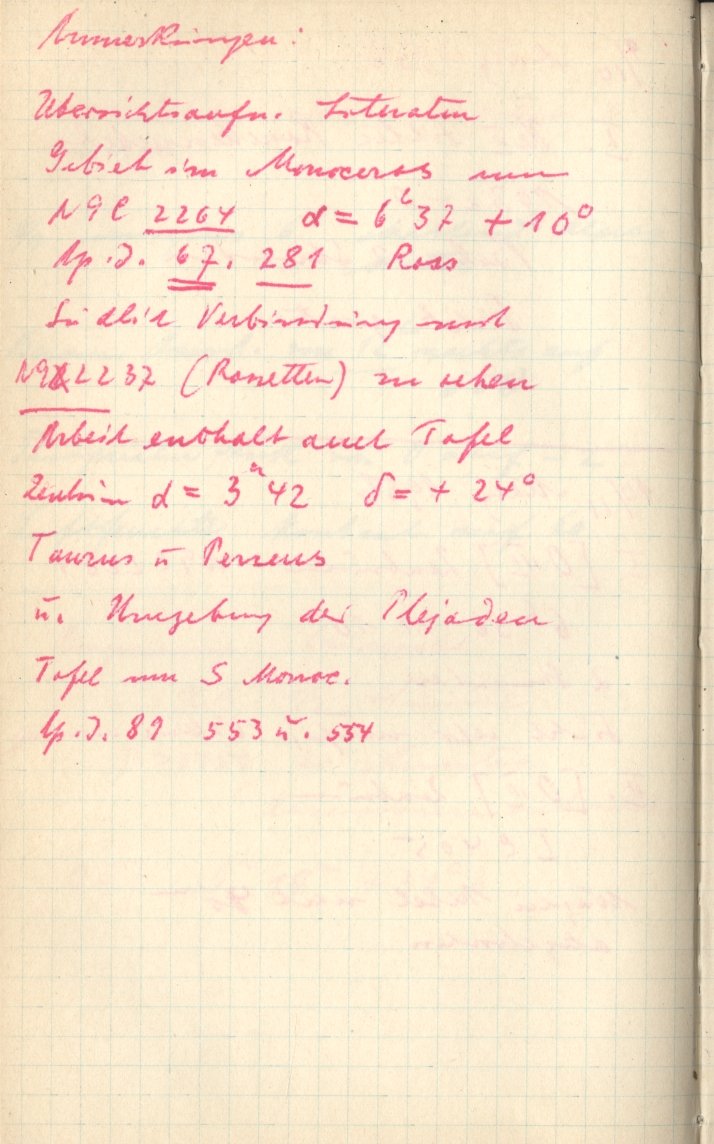 Anmerkungen:
Übersichtsaufn. Literatur
Gebiet im Monoceros um
NGC 2264 α = 6h 37 + 10°
Ap. J. 67. 281 Ross
Südlich Verbindung mit
NGC 2237 (Rosetten) zu sehen
Arbeit enthalt auch Tafel
Zentrum α = 3h 42 δ = + 24°
Taurus u Perseus
u. Umgebung der Plejaden
Tafel um S Monoc.
Ap. J. 89 553 u. 554